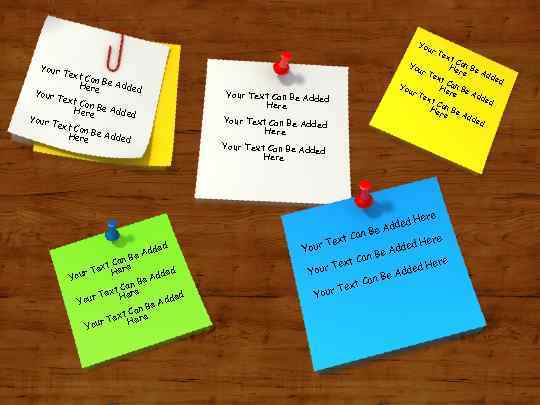 Your Text Can Be Added
Here
Your Text Can Be Added
Here
Your Text Can Be Added
Here
Your Text Can Be Added
Here
Your Text Can Be Added
Here
Your Text Can Be Added
Here
Your Text Can Be Added
Here
Your Text Can Be Added
Here
Your Text Can Be Added
Here
Your Text Can Be Added
Here
Your Text Can Be Added
Here
Your Text Can Be Added
Here
Your Text Can Be Added Here
Your Text Can Be Added Here
Your Text Can Be Added Here